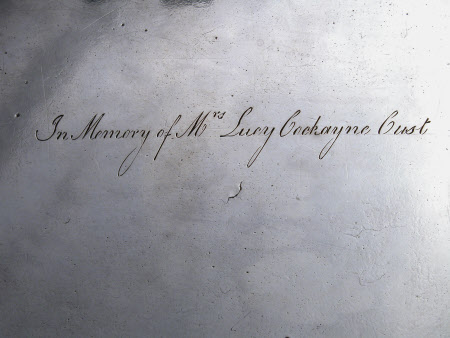 In Memory of Mrs Lucy Cockayne Cust